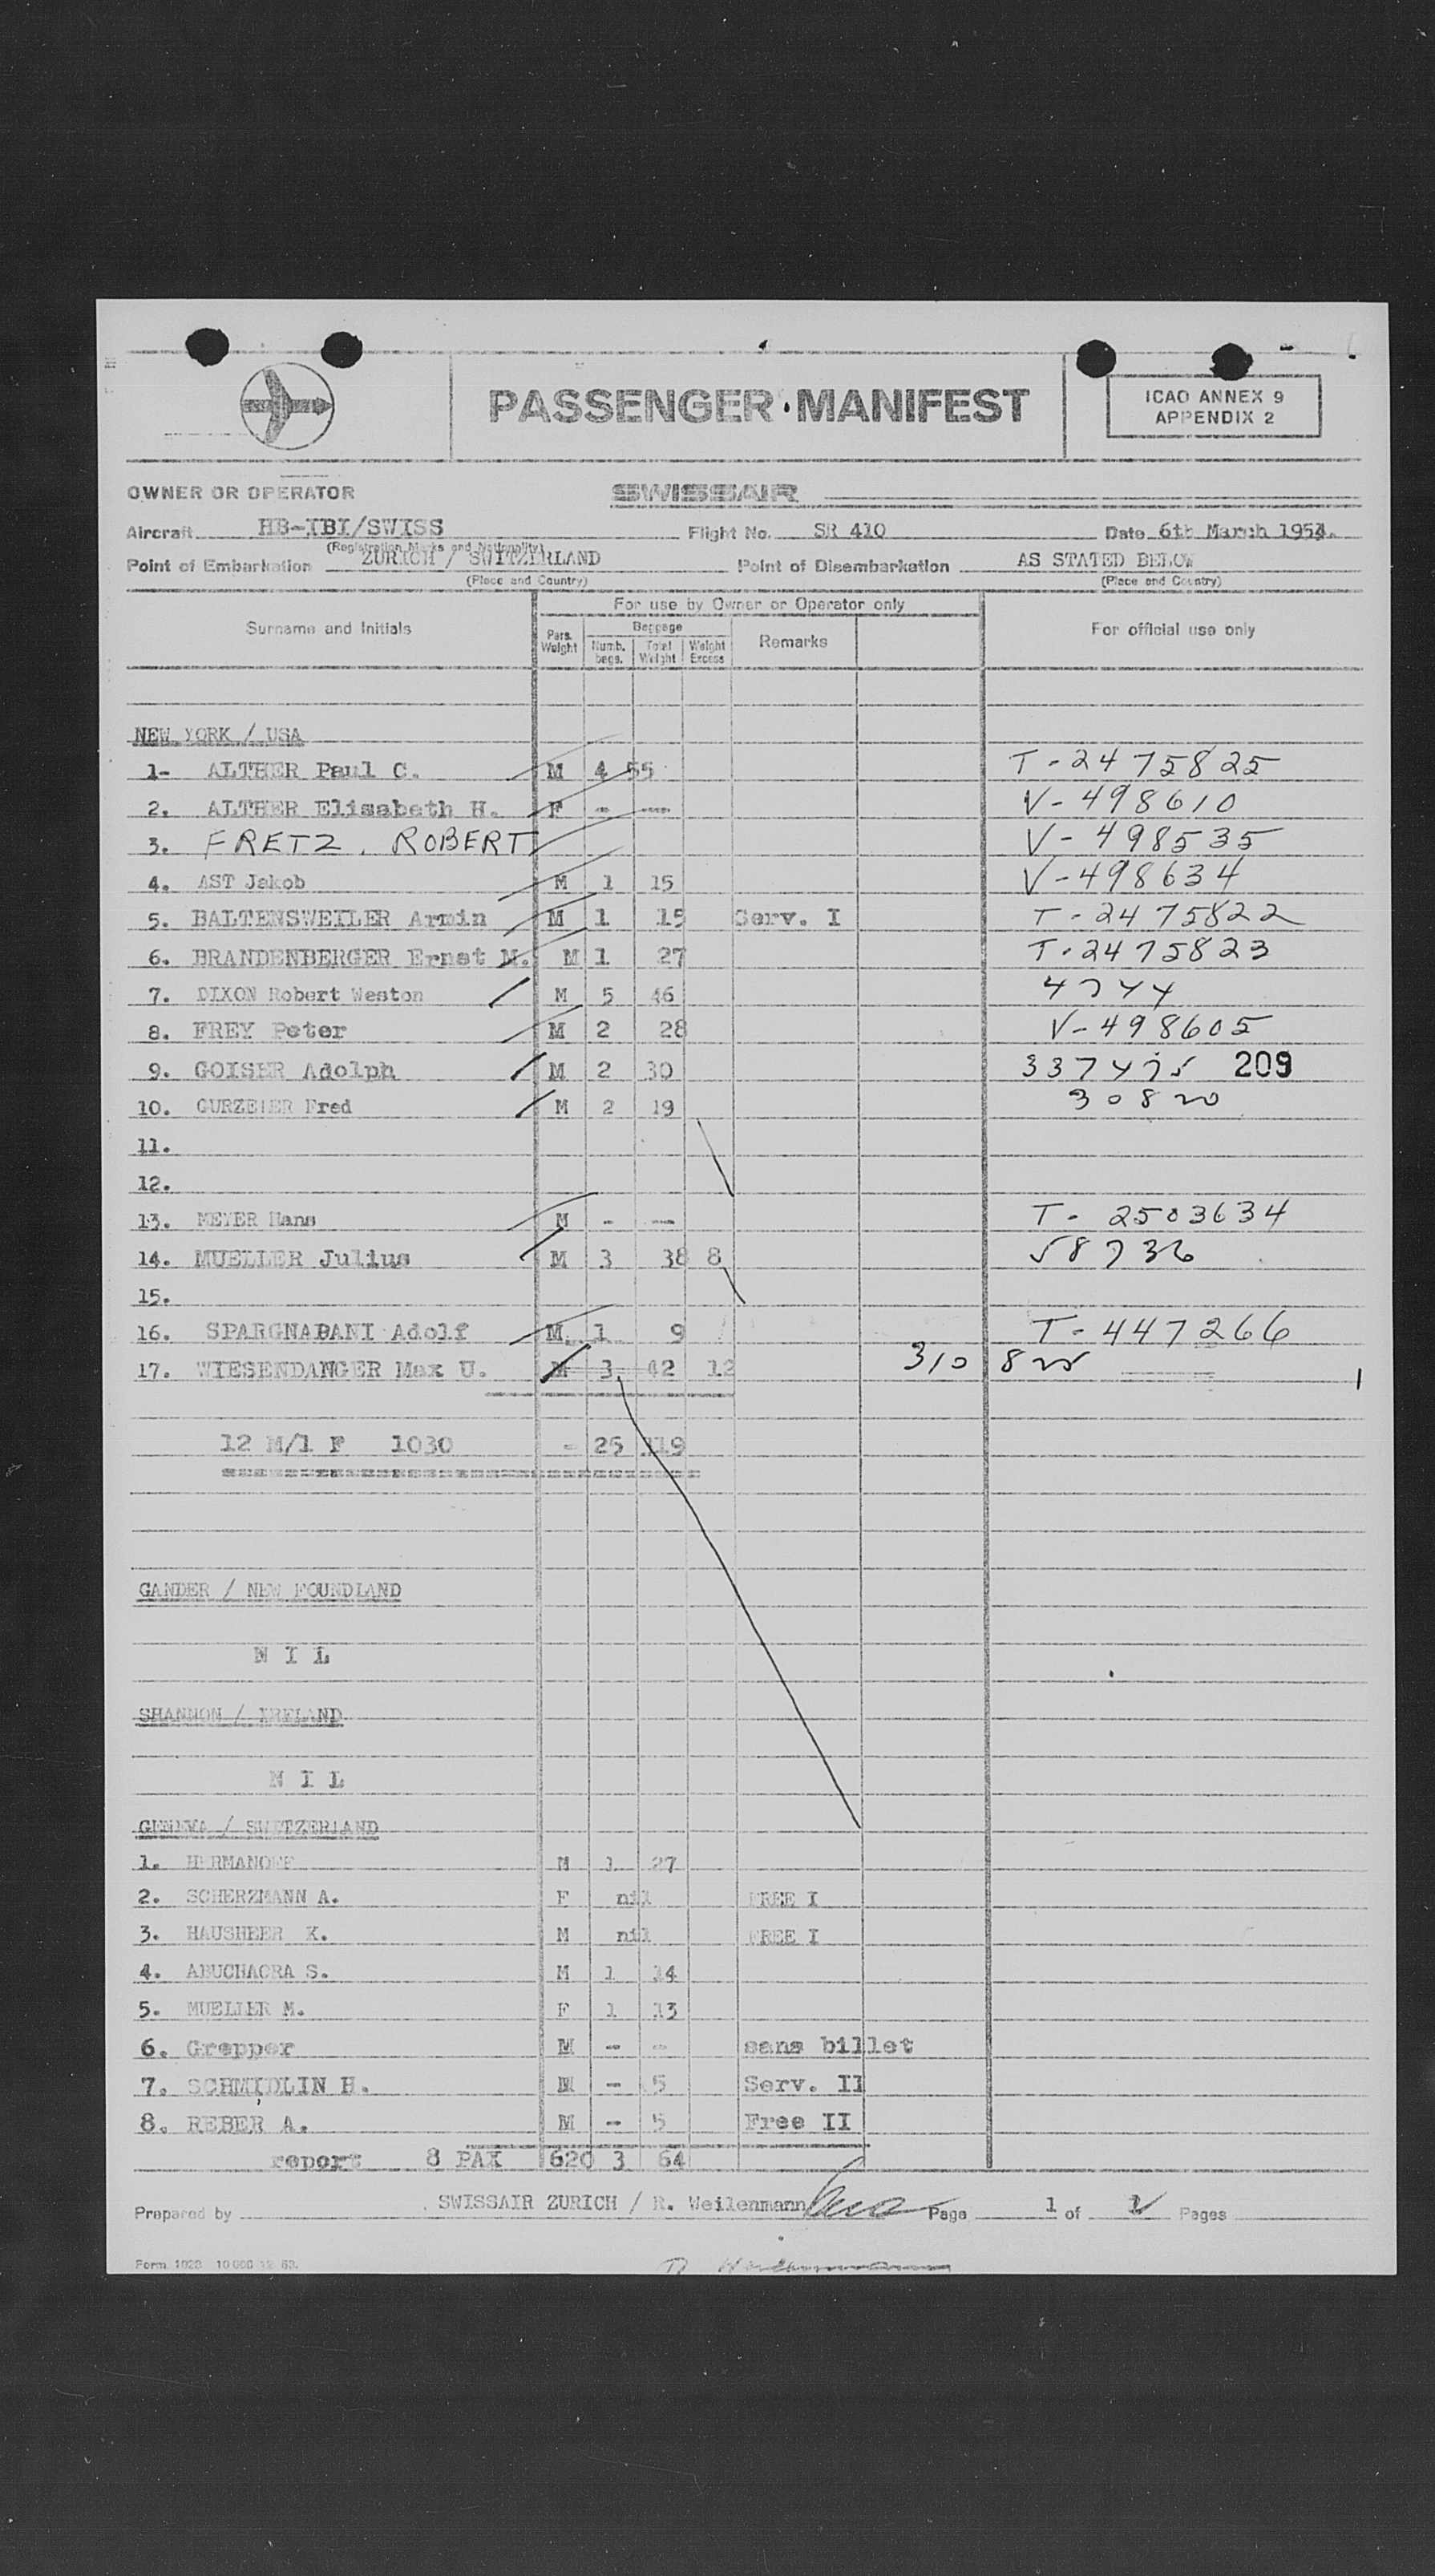 PASSENGER MANIFEST
ICAO ANNEX 9
APPENDIX 2
OWNER OR OPERATOR SWISSAIR
Aircraft HB-IBI/SWISS Flight No. SR 410 Date 6th March 1954.
(Registration Marks and Nationality)
Point of Embarkation ZURICH / SWITZERLAND Point of Disembarkation AS STATED BELOW
(Place and Country) (Place and Country)
For use by Owner or Operator only
Surname and Initials Pers. Weight Baggage Numb. bags. Total Weight Weight Excess Remarks For official use only
NEW YORK / USA
1- ALTHER Paul C. M 4 55 T-2475825
2. ALTHER Elisabeth H. F - --- V-498610
3. FRETZ, ROBERT V-498535
4. AST Jakob M 1 15 V-498634
5. BALTENSWEILER Armin M 1 15 Serv. I T-2475822
6. BRANDENBERGER Ernst M. M 1 27 T-2475823
7. DIXON Robert Weston M 5 46
8. FREY Peter M 2 28 V-498605
9. GOISER Adolph M 2 30 209
10. Fred M 2 19
11.
12.
13. MEYER Hans M - --- T-2503634
14. MUELLER Julius M 3 38 8 58736
15.
16. Adolf M. 1 9 T-447266
17. WIESENDANGER Max U. M 3 42 12 310
12 M/1 F 1030 - 25
GANDER / NEW FOUNDLAND
N I L
SHANNON / IRELAND
N I L
GENEVA / SWITZERLAND
1. M 1 27
2. SCHERZMANN A. F nil FREE I
3. HAUSHEER K. M nil FREE I
4. ABUCHACRA S. M 1 14
5. MUELLER M. F 1 13
6. Grepper M - - sans billet
7. SCHMIDLIN H. M - 5 Serv. II
8. REBER A. M - 5 Free II
report 8 PAX 620 3 64
Prepared by SWISSAIR ZURICH / R. Weilenmann Page 1 of Pages
Form 1028